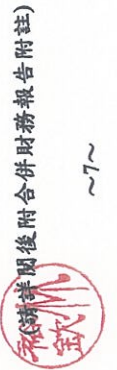 (請詳閱後附合併財務報告附註)
~7~